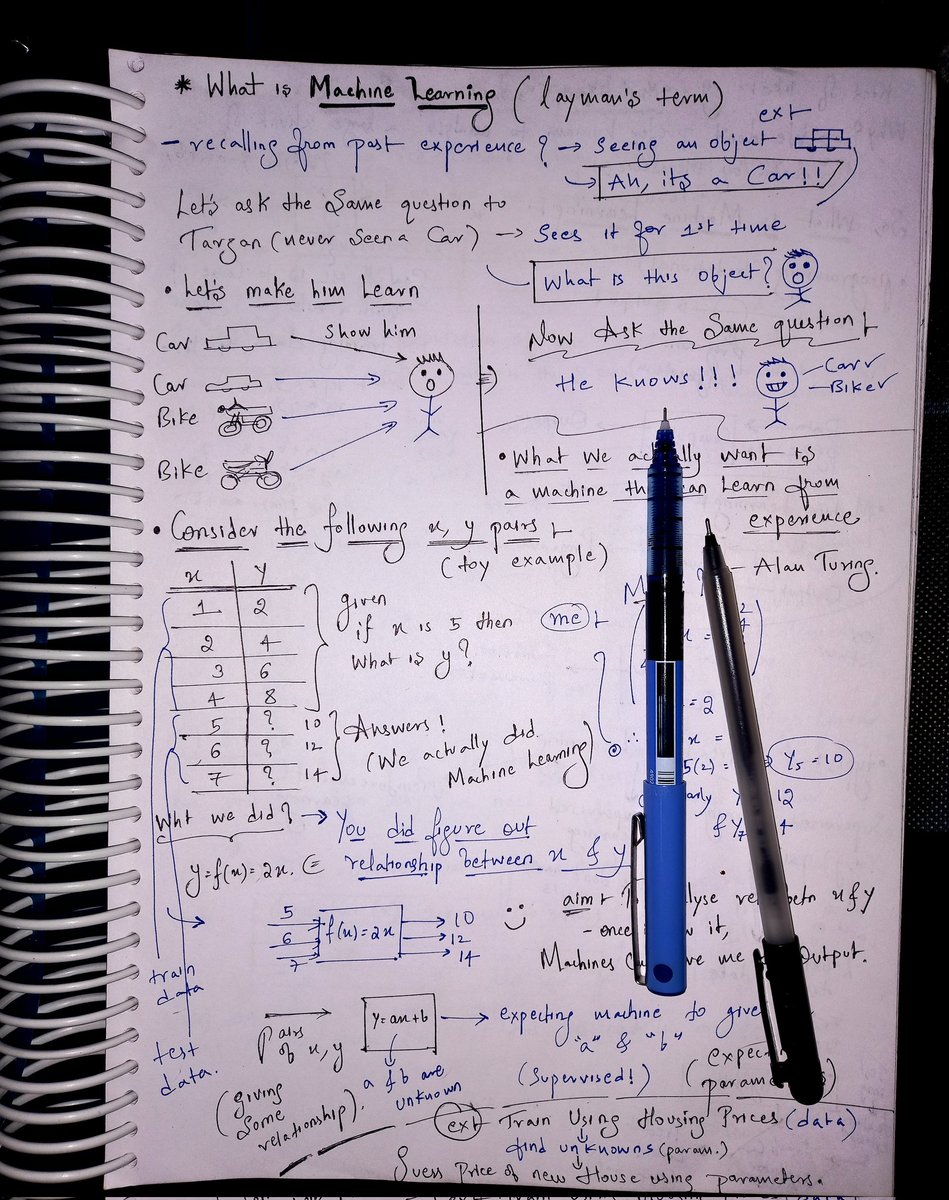 * What is Machine Learning (layman's term)
- recalling from past experience? → Seeing an object ext
→ Ah, its a Car!!
Let's ask the Same question to
Tarzan (never Seen a Car) → Sees it for 1st time
What is this object?
• Let's make him Learn
Car Show him
Car
Bike
Bike
Now Ask the Same question
He knows!!!
Car✓
Bike✓
• What we actually want is
a machine that can Learn from
experience
- Alan Turing.
• Consider the following x, y pairs
(toy example)
x y
1 2
2 4
3 6
4 8
5 ? 10
6 ? 12
7 ? 14
given
if x is 5 then
What is y?
Answers!
(We actually did
Machine Learning)
me
= 2
∴ x =
5(2) = Y5 = 10
12
& Y7 4
What we did? → You did figure out
y = f(x) = 2x. ∈ relationship between x & y
5 10
6 f(x) = 2x 12
7 14
aim To analyse betn x & y
- once it,
Machines me Output.
train
data
test
data.
Pairs
of x, y
y = ax + b → expecting machine to give
"a" & "b"
a & b are
unknown
(giving
Some
relationship).
(Supervised!)
ext Train Using Housing Prices (data)
find unknowns (param.)
Guess Price of new House using parameters.